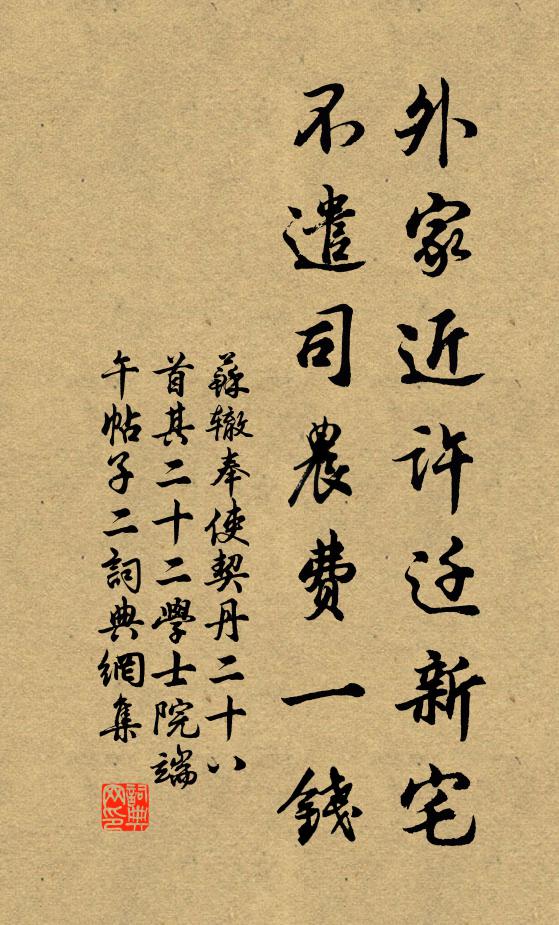 外家近許迁新宅
不遣司農費一錢
蘇轍奉使契丹二十八
首其二十二學士院端
午帖子二詞典網集
詞典网印